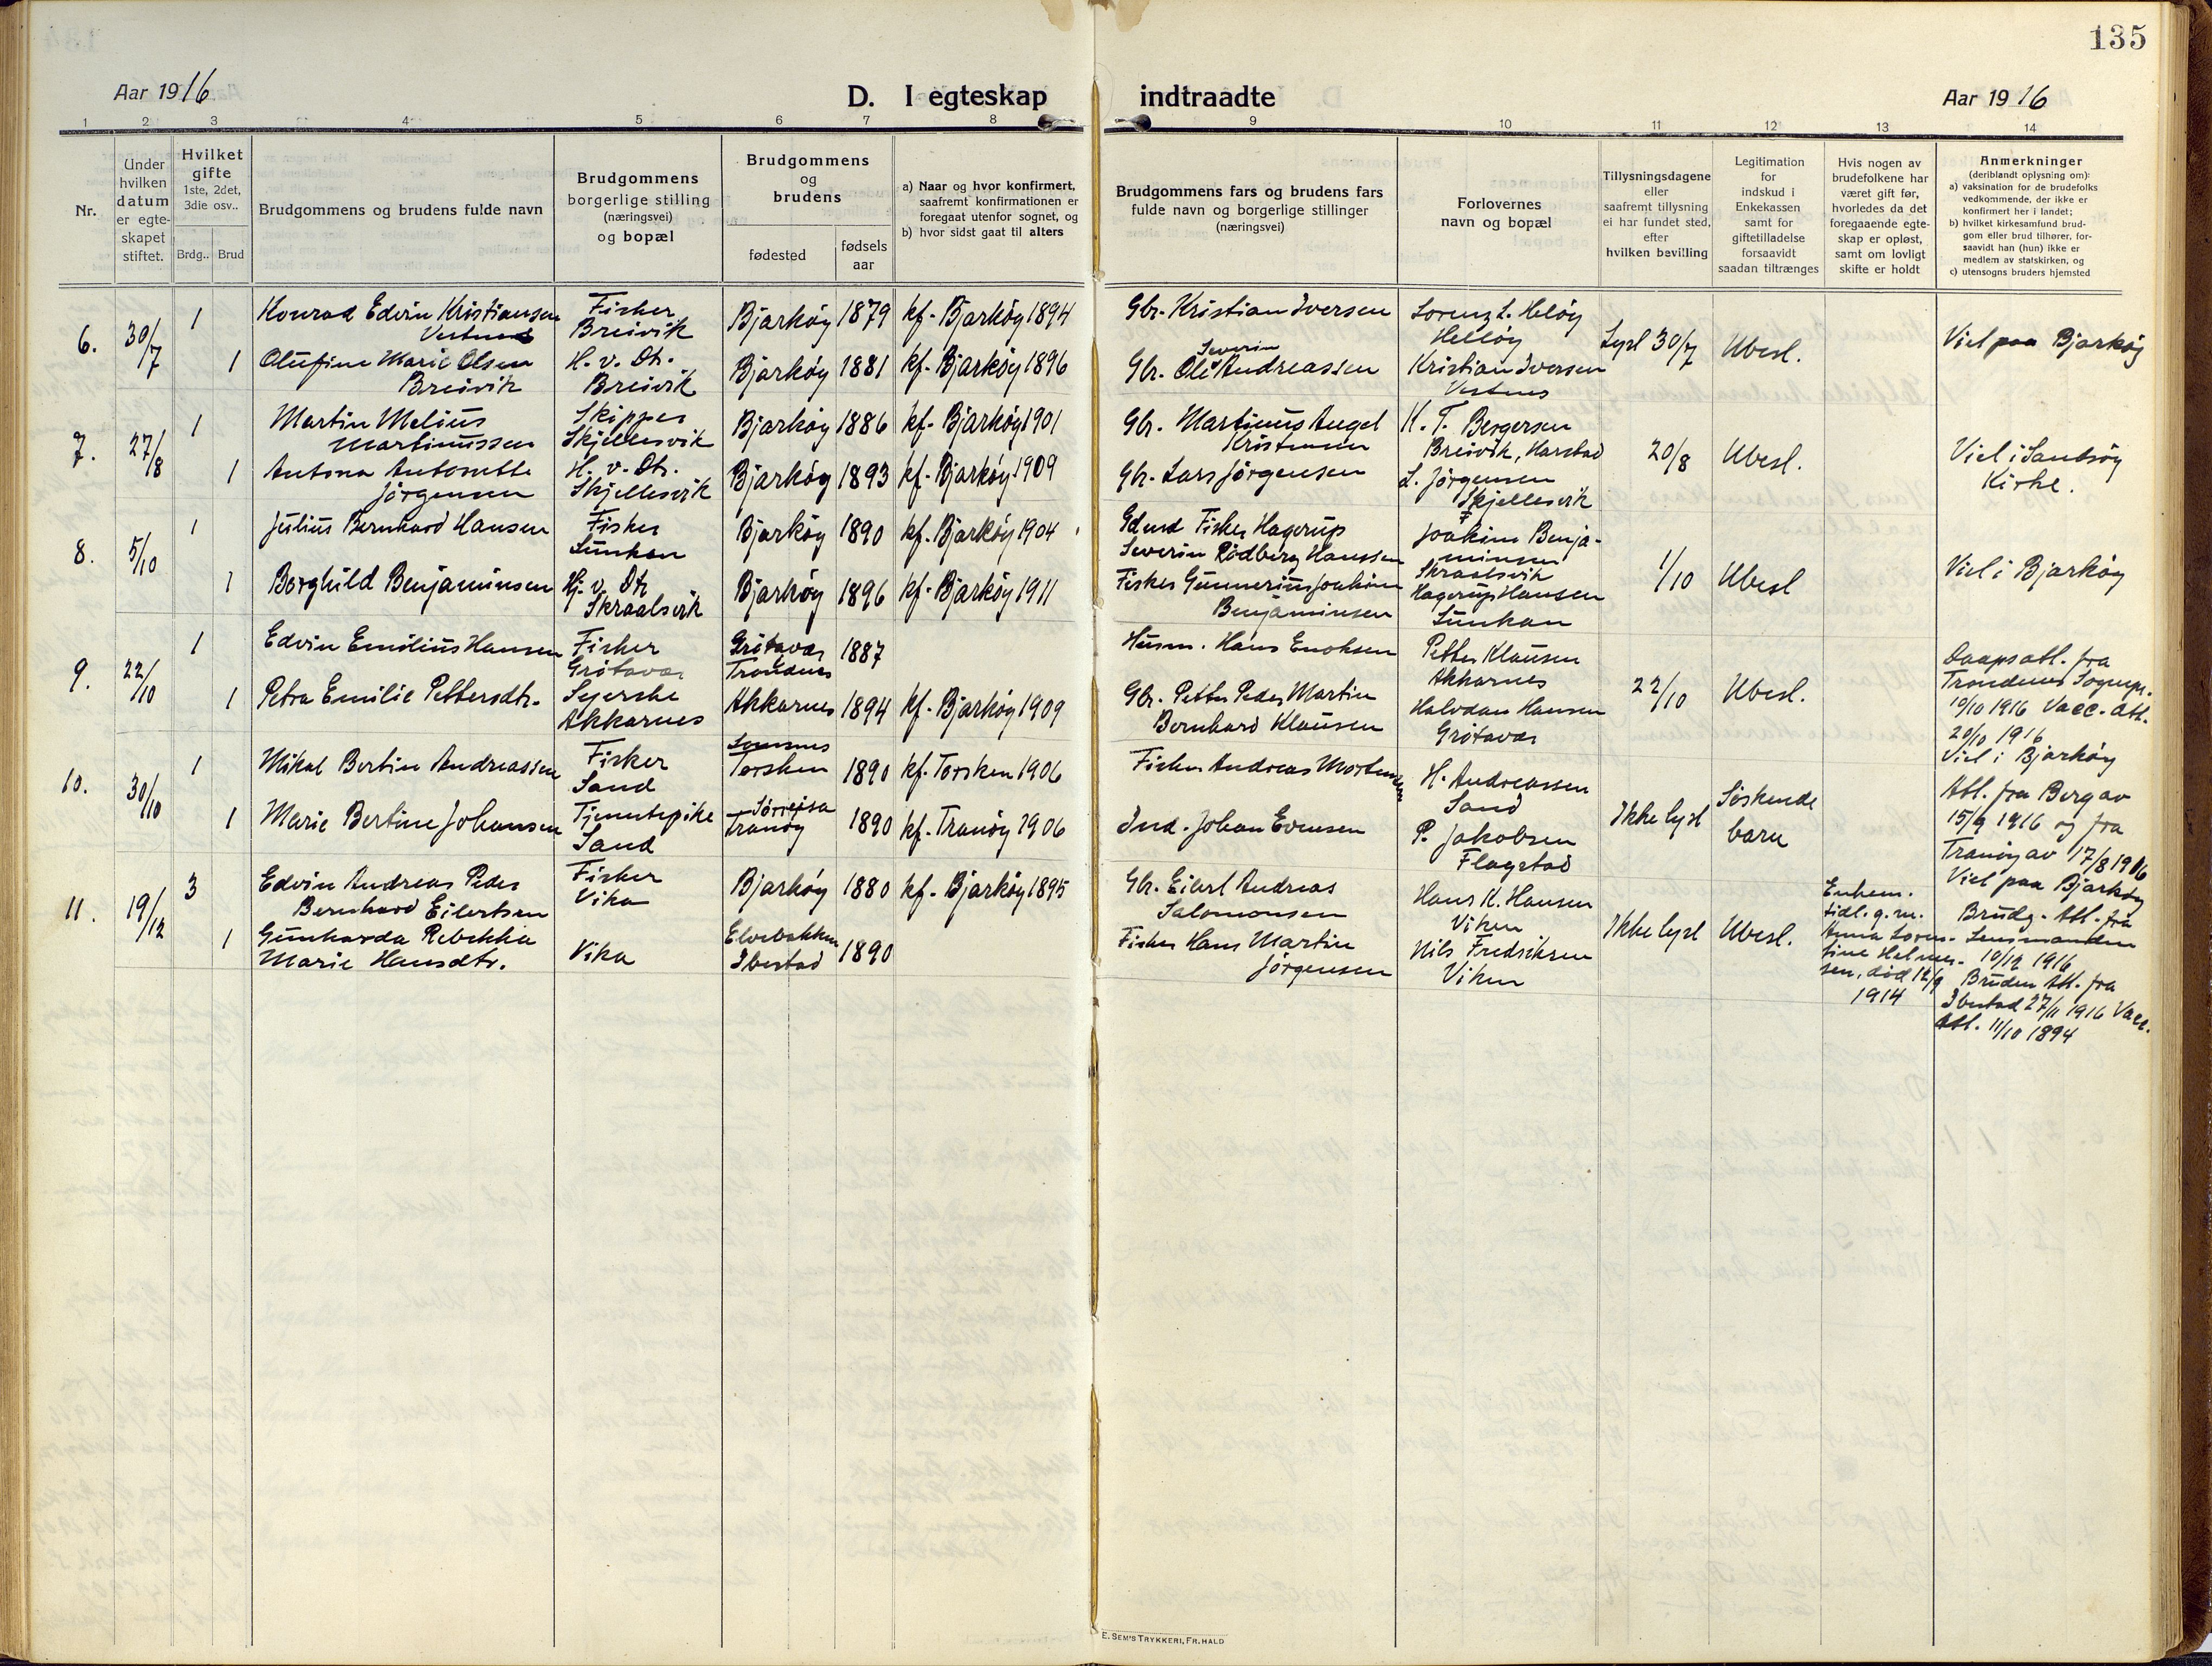 135
Aar 1916
D. I egteskap indtraadte
Aar 1916
1 2 3 4 5 6 7 8 9 10 11 12 13 14
Nr.
Under
hvilken
datum
er egte-
skapet
stiftet.
Hvilket
gifte
1ste, 2det,
3die osv..
Brdg.. Brud
Brudgommens og brudens fulde navn
Brudgommens
borgerlige stilling
(næringsvei)
og bopæl
Brudgommens
og
brudens
fødested
fødsels
aar
a) Naar og hvor konfirmert,
saafremt konfirmationen er
foregaat utenfor sognet, og
b) hvor sidst gaat til alters
Brudgommens fars og brudens fars
fulde navn og borgerlige stillinger
(næringsvei)
Forlovernes
navn og bopæl
Tillysningsdagene
eller
saafremt tillysning
ei har fundet sted,
efter
hvilken bevilling
Legitimation
for
indskud i
Enkekassen
samt for
giftetilladelse
forsaavidt
saadan tiltrænges
Hvis nogen av
brudefolkene har
været gift før,
hvorledes da det
foregaaende egte-
skap er opløst,
samt om lovligt
skifte er holdt
Anmerkninger
(deriblandt oplysning om):
a) vaksination for de brudefolks
vedkommende, der ikke er
konfirmert her i landet;
b) hvilket kirkesamfund brud-
gom eller brud tilhører, for-
saavidt han (hun) ikke er
medlem av statskirken, og
c) utensogns bruders hjemsted
6.
30/7
1
Konrad Edvin Kristiansen
Vestnes
Fisker
Breivik
Bjarkøy
1879
kf. Bjarkøy 1894
Gbr. Kristian Iversen
Lorenz L. Heløy
Helløy
Lyst 30/7
Ubesl.
Viet paa Bjarkøy
1
Olufine Marie Olsen
Breivik
H. v. Dt.
Breivik
Bjarkøy
1881
kf. Bjarkøy 1896
Severin
Gbr. Ole Andreassen
Kristian Iversen
Vestnes
7.
27/8
1
Martin Melius
Martinussen
Skipper
Skjellesvik
Bjarkøy
1886
kf. Bjarkøy 1901
Gbr. Martinus Angel
Kristensen
K. T. Bergersen
Breivik, Harstad
20/8
Ubesl.
Viet i Sandsøy
Kirke.
1
Antona Antonette
Jørgensen
H. v. Dt.
Skjellesvik
Bjarkøy
1893
kf. Bjarkøy 1909
Gbr. Lars Jørgensen
L. Jørgensen
Skjellesvik
8.
5/10
1
Julius Bernhard Hansen
Fisker
Sunkan
Bjarkøy
1890
kf. Bjarkøy 1904
Gdmd Fisker Hagerup
Severin Rødberg Hanssen
Joakim Benja-
minsen
Skraalsvik
1/10
Ubesl
Viet i Bjarkøy
1
Borghild Benjaminsen
Hj. v. Dt
Skraalsvik
Bjarkøy
1896
kf. Bjarkøy 1911
Fisker Gunnerius Joakim
Benjaminsen
Hagerup Hansen
Sunkan
9.
22/10
1
Edvin Emilius Hansen
Fisker
Grøtavær
Grøtavær
Trondenes
1887
Husm. Hans Enoksen
Petter Klausen
Akkarnes
22/10
Ubesl.
Daapsatt. fra
Trondenes Sognepr.
19/10 1916 Vacc. att.
20/10 1916
Viet i Bjarkøy
1
Petra Emilie Pettersdtr.
Sejerske
Akkarnes
Akkarnes
1894
kf. Bjarkøy 1909
Gbr. Petter Peder Martin
Bernhard Klausen
Halvdan Hansen
Grøtavær
10.
30/10
1
Mikal Bertin Andreassen
Fisker
Sand
Torsken
1890
kf. Torsken 1906
Fisker Andreas Mortensen
H. Andreassen
Sand
Ikke lyst
Søskende
barn
Att. fra Berg av
15/9 1916 og fra
Tranøy av 17/8 1916
Viet paa Bjarkøy
1
Marie Bertine Johansen
Tjenestepike
Sand
Sørreisa
Tranøy
1890
kf. Tranøy 1906
Ind. Johan Evensen
P. Jakobsen
Flagstad
11.
19/12
3
Edvin Andreas Peder
Bernhard Eilertsen
Fisker
Vika
Bjarkøy
1880
kf. Bjarkøy 1895
Gbr. Eilert Andreas
Salomonsen
Hans K. Hansen
Viken
Ikke lyst
Ubesl.
Enkem.
tidl. g. m.
Anna Loren-
tine Helmer-
sen, død 12/9
1914
Brudg. Att. fra
Lensmanden
10/12 1916
Bruden Att. fra
Ibestad 27/11 1916 Vacc.
Att. 11/10 1894
1
Gunharda Rebekka
Marie Hansdtr.
Vika
Elvebakken
Ibestad
1890
Fisker Hans Martin
Jørgensen
Nils Fredriksen
Viken
E. SEM'S TRYKKERI, FR. HALD